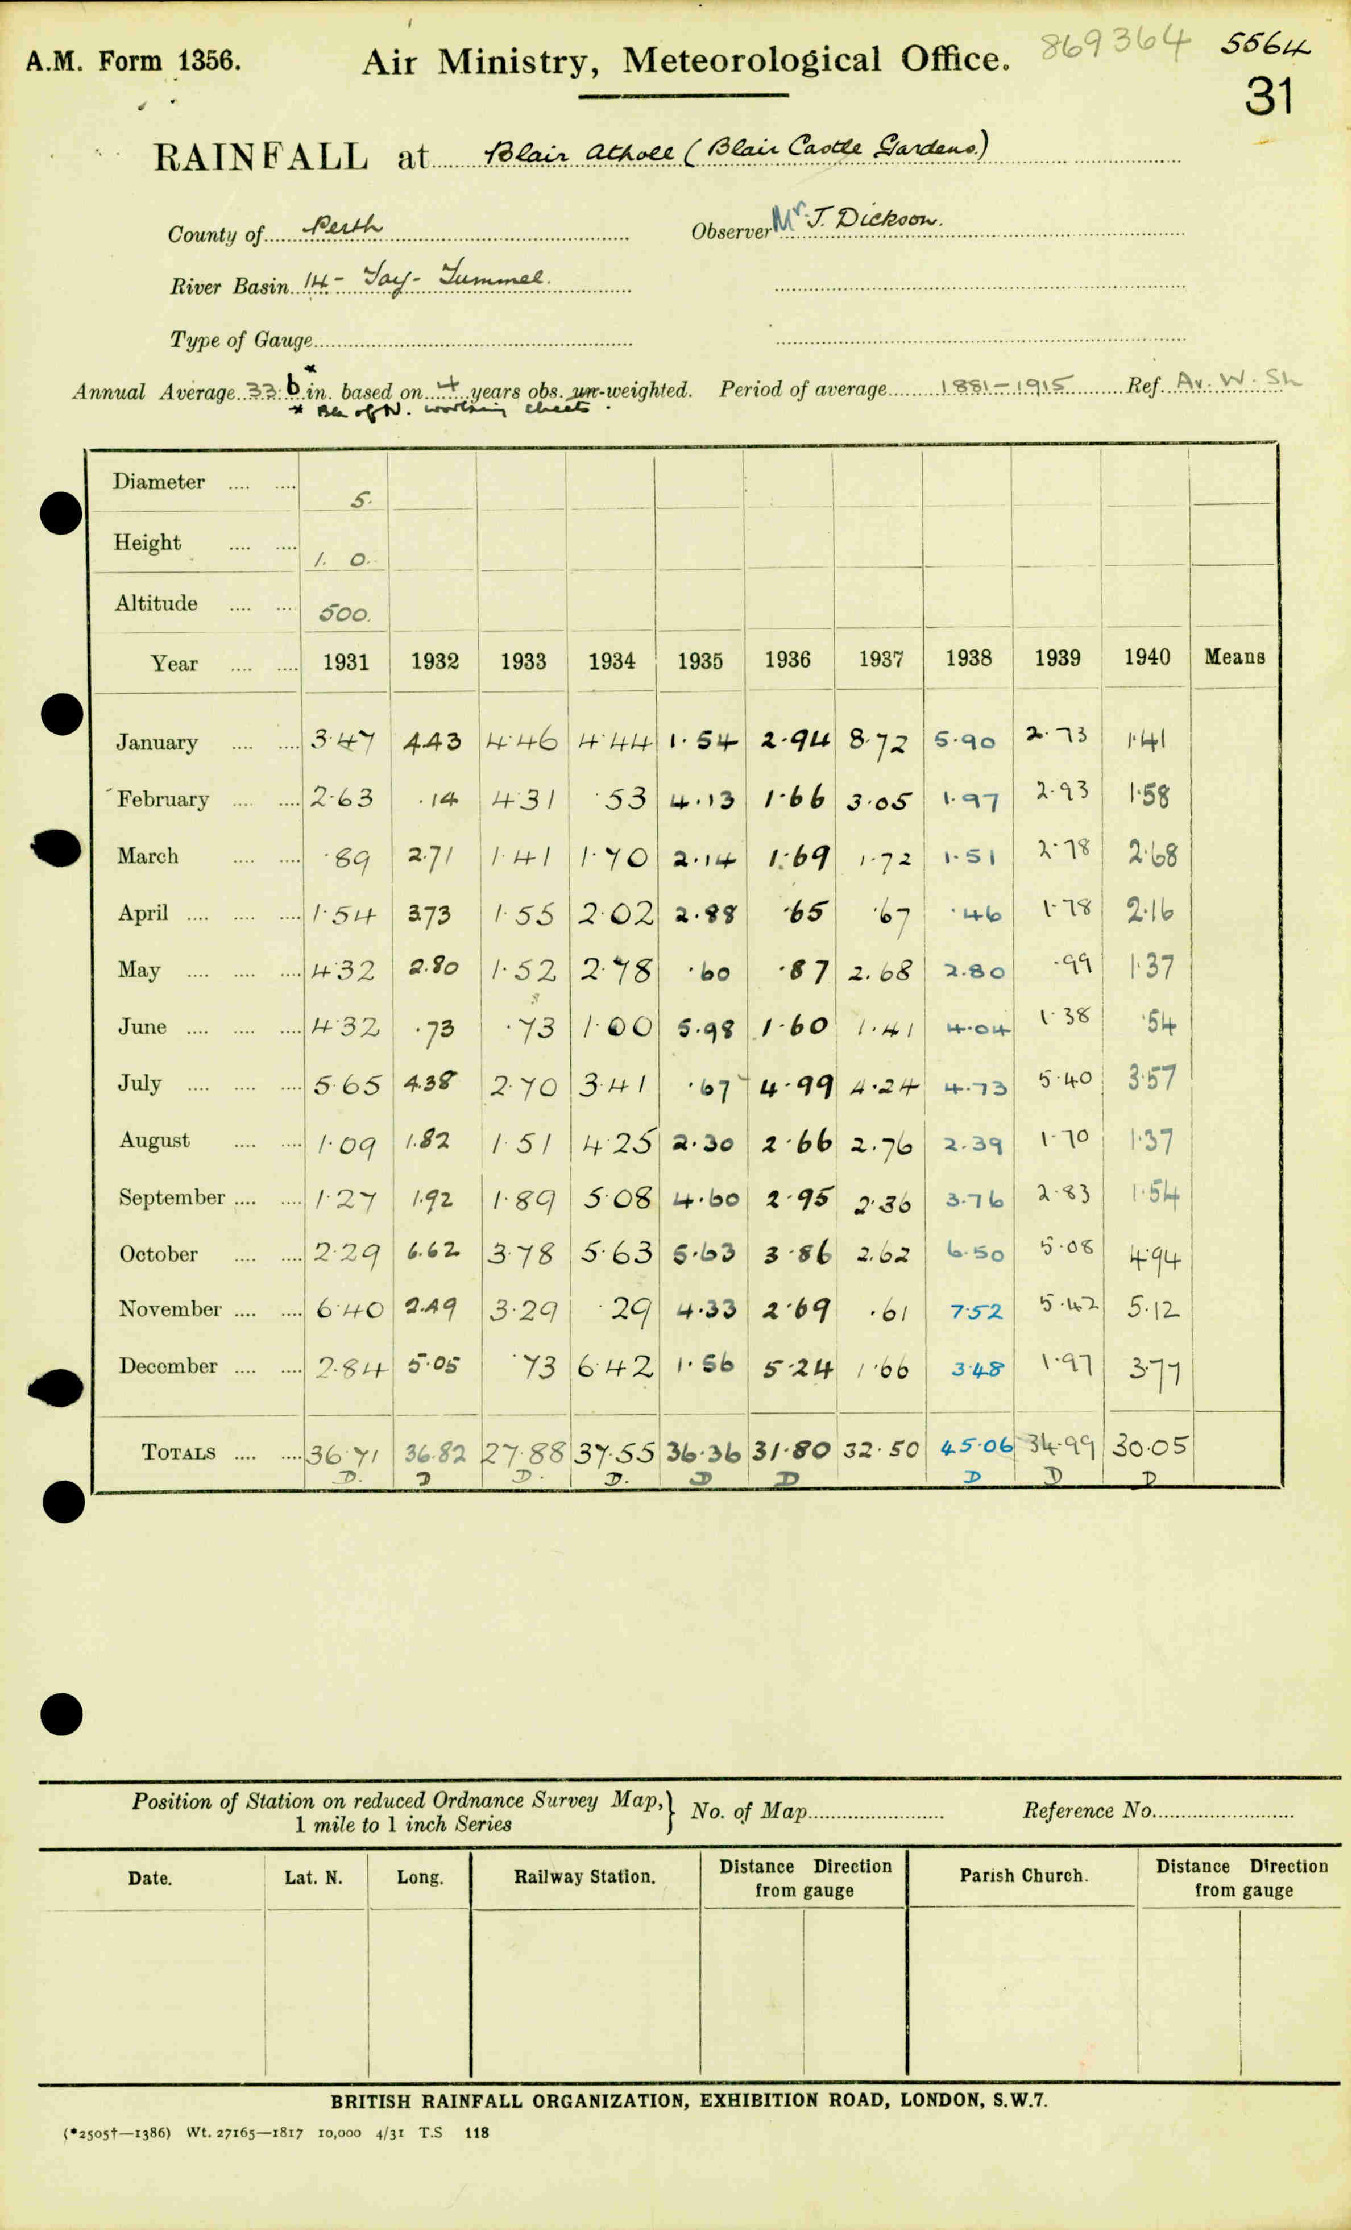 A.M. Form 1356. Air Ministry, Meteorological Office. 869364 5564
31
RAINFALL at Blair Atholl (Blair Castle Gardens.)
County of Perth Observer Mr. J. Dickson.
River Basin 14 - Tay - Tummel.
Type of Gauge
Annual Average 33.6* in. based on 4 years obs. un-weighted. Period of average 1881-1915 Ref. Av. W. Sh
* working sheets.
Diameter .... .... 5.
Height .... .... 1. 0.
Altitude .... .... 500.
Year .... .... 1931 1932 1933 1934 1935 1936 1937 1938 1939 1940 Means
January .... .... 3.47 4.43 4.46 4.44 1.54 2.94 8.72 5.90 2.73 1.41
February .... .... 2.63 .14 4.31 .53 4.13 1.66 3.05 1.97 2.93 1.58
March .... .... .89 2.71 1.41 1.70 2.14 1.69 1.72 1.51 2.78 2.68
April .... .... .... 1.54 3.73 1.55 2.02 2.88 .65 .67 .46 1.78 2.16
May .... .... .... 4.32 2.80 1.52 2.78 .60 .87 2.68 2.80 .99 1.37
June .... .... .... 4.32 .73 .73 1.00 5.98 1.60 1.41 4.04 1.38 .54
July .... .... .... 5.65 4.38 2.70 3.41 .67 4.99 4.24 4.73 5.40 3.57
August .... .... 1.09 1.82 1.51 4.25 2.30 2.66 2.76 2.39 1.70 1.37
September .... .... 1.27 1.92 1.89 5.08 4.60 2.95 2.36 3.76 2.83 1.54
October .... .... 2.29 6.62 3.78 5.63 5.63 3.86 2.62 6.50 5.08 4.94
November .... .... 6.40 2.49 3.29 .29 4.33 2.69 .61 7.52 5.42 5.12
December .... .... 2.84 5.05 .73 6.42 1.56 5.24 1.66 3.48 1.97 3.77
TOTALS .... .... 36.71 36.82 27.88 37.55 36.36 31.80 32.50 45.06 34.99 30.05
D. D D. D. D D D D D
Position of Station on reduced Ordnance Survey Map,} No. of Map Reference No.
1 mile to 1 inch Series
Date. Lat. N. Long. Railway Station. Distance Direction Parish Church. Distance Direction
from gauge from gauge
BRITISH RAINFALL ORGANIZATION, EXHIBITION ROAD, LONDON, S.W.7.
(*2505†—1386) Wt. 27165—1817 10,000 4/31 T.S 118